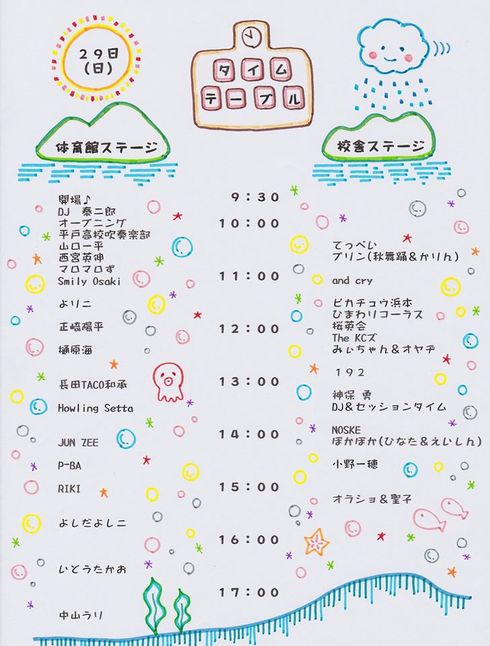 29日
(日)
タイム
テーブル
体育館ステージ
校舎ステージ
開場♪
9:30
DJ 泰二郎
オープニング
10:00
平戸高校吹奏楽部
山口一平
てっぺい
西宮英伸
プリン(秋舞踊&かりん)
マロマロず
11:00
Smily Osaki
and cry
よりこ
ピカチョウ浜本
ひまわりコーラス
正崎陽平
12:00
桜英会
The KCズ
樋原海
みぃちゃん&オヤヂ
192
長田TACO和承
13:00
神保 勇
Howling Setta
DJ&セッションタイム
NOSKE
JUN ZEE
14:00
ぽかぽか(ひなた&えいしん)
P-BA
小野一穂
RIKI
15:00
オラショ&聖子
よしだよしこ
16:00
いとうたかお
17:00
中山うり